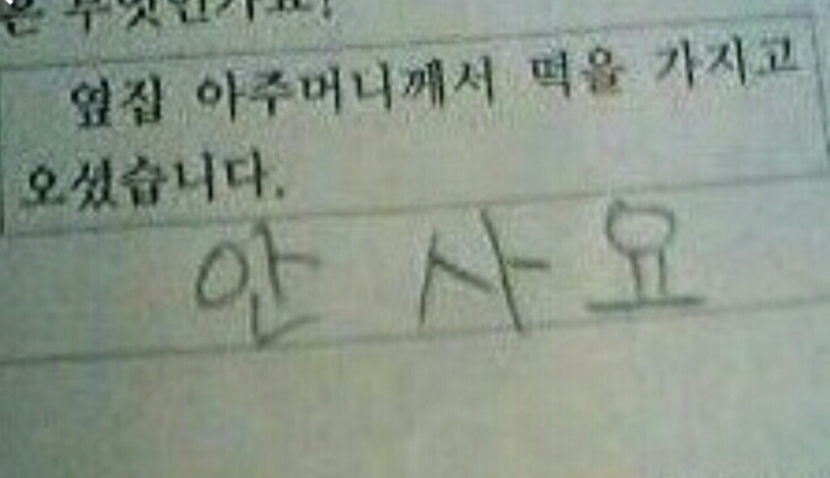 은 무엇인가요?
옆집 아주머니께서 떡을 가지고
오셨습니다.
안 사요